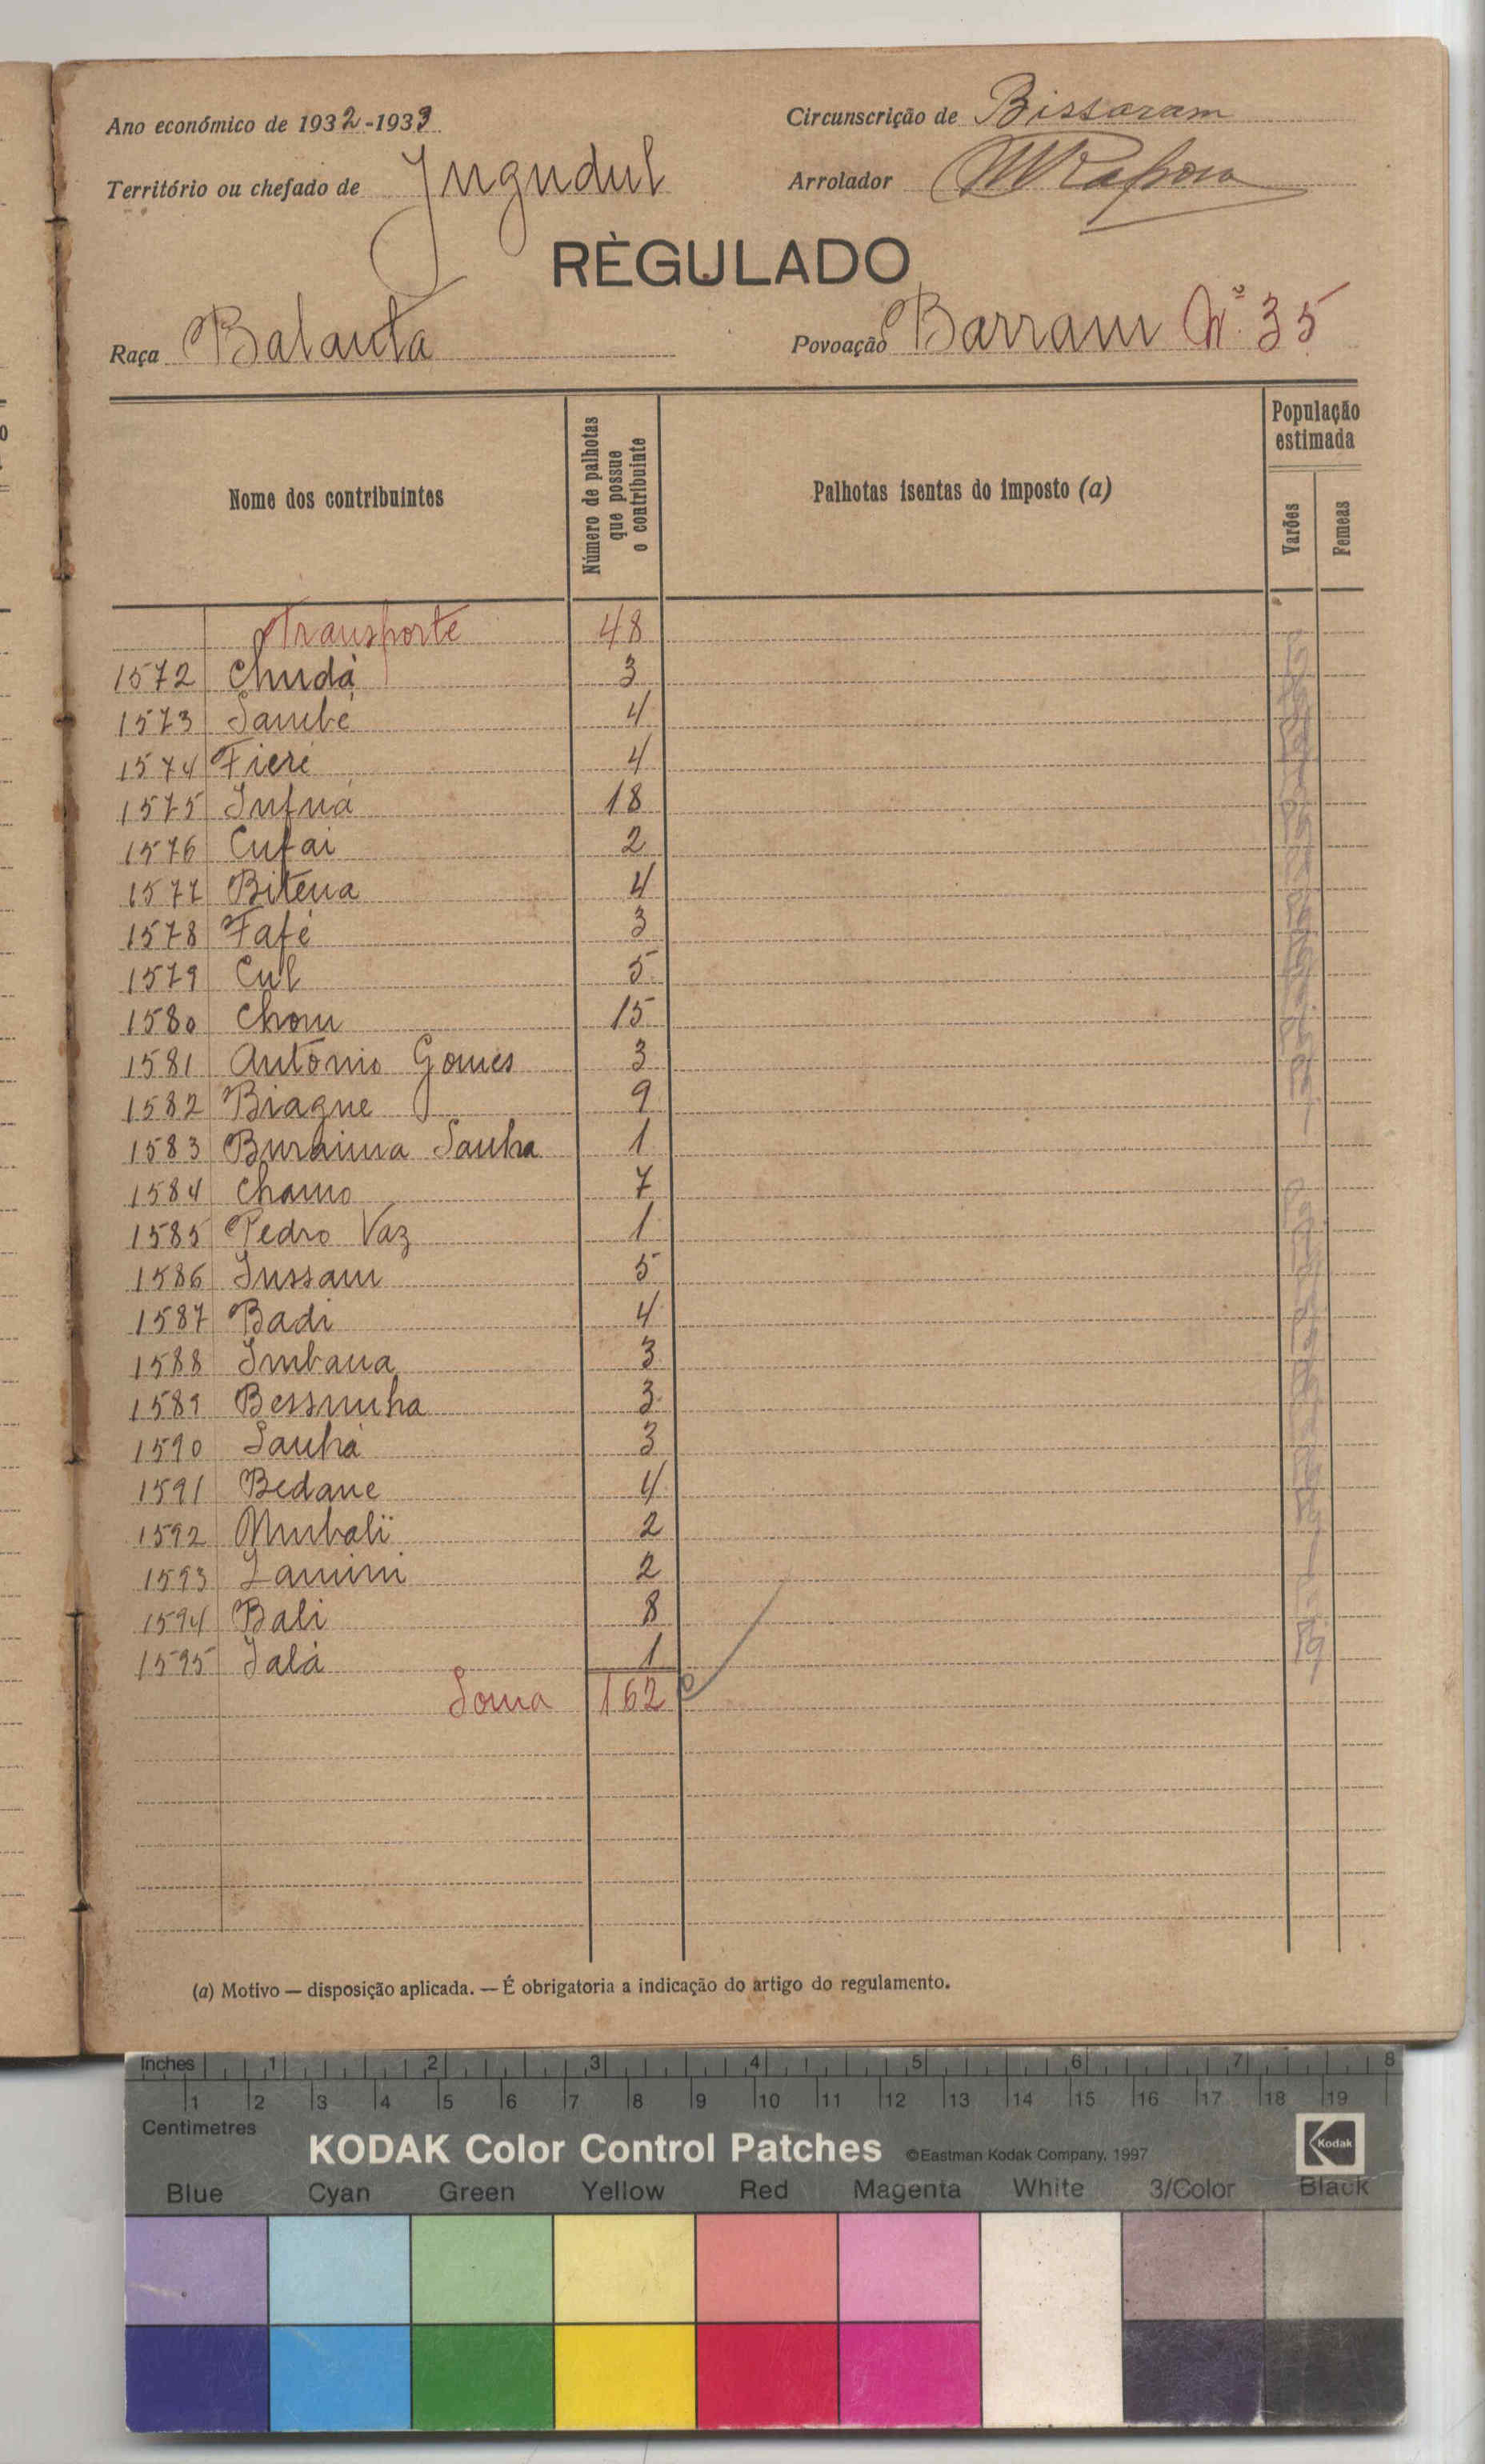 Ano económico de 1932-1933
Circunscrição de Bissoram
Território ou chefado de Jugudul
Arrolador
RÈGULADO
Raça Balanta
Povoação Barram Nº. 35
Nome dos contribuintes
Número de palhotas que possue o contribuinte
Palhotas isentas do imposto (a)
População estimada
Varões
Femeas
Transporte 48
1572 Chudá 3
1573 Sambé 4
1574 Fieré 4
1575 Infuá 18
1576 Cufai 2
1577 Bitena 4
1578 Fafé 3
1579 Cul 5
1580 Chom 15
1581 António Gomes 3
1582 Biague 9
1583 Buraima Sanha 1
1584 Chamo 7
1585 Pedro Vaz 1
1586 Inssam 5
1587 Badi 4
1588 Imbana 3
1589 Bessunha 3
1590 Sanhá 3
1591 Bedane 4
1592 Mubali 2
1593 Lamini 2
1594 Bali 8
1595 Jalá 1
Soma 162
(a) Motivo — disposição aplicada. — É obrigatoria a indicação do artigo do regulamento.
Inches 1 2 3 4 5 6 7 8
1 2 3 4 5 6 7 8 9 10 11 12 13 14 15 16 17 18 19
Centimetres
KODAK Color Control Patches ©Eastman Kodak Company, 1997 Kodak
Blue Cyan Green Yellow Red Magenta White 3/Color Black